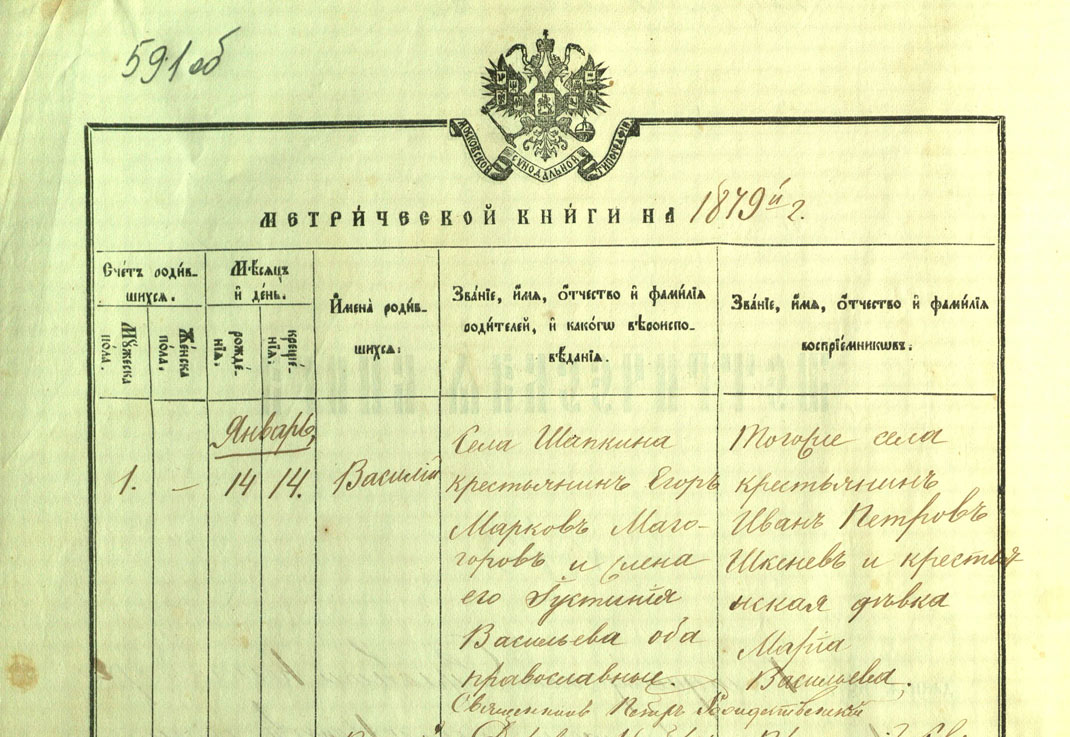 591 об
МОСКОВСКОЙ СУНОДАЛЬНОЙ ТИПОГРАФІИ
МЕТРИ́ЧЕСКОЙ КНИ́ГИ НА 1879й г.
Сче́тъ роди́в-
шихся.
Мѣ́сяцъ
и҆ де́нь.
И҆мена̀ роди́в-
шихся:
Зва́нїе, и҆́мя, ѻ҆́тчество и҆ фами́лїѧ
роди́телей, и҆ како́гѡ вѣроиспо-
вѣ́данїѧ.
Зва́нїе, и҆́мя, ѻ҆́тчество и҆ фами́лїѧ
воспрїе́мникѡвъ.
Мꙋ́жеска
пола.
Же́нска
по́ла.
рожде́-
нїѧ.
креще́-
нїѧ.
Январь,
1. — 14 14. Василій
Села Шапкина
крестьянинъ Егоръ
Марковъ Маго-
горовъ и жена
его Іустинія
Васильева оба
православные.
Священникъ Петръ Рождественскій
Тогоже села
крестьянинъ
Иванъ Петровъ
Шкеневъ и крестья
нская дѣвка
Марія
Васильева.